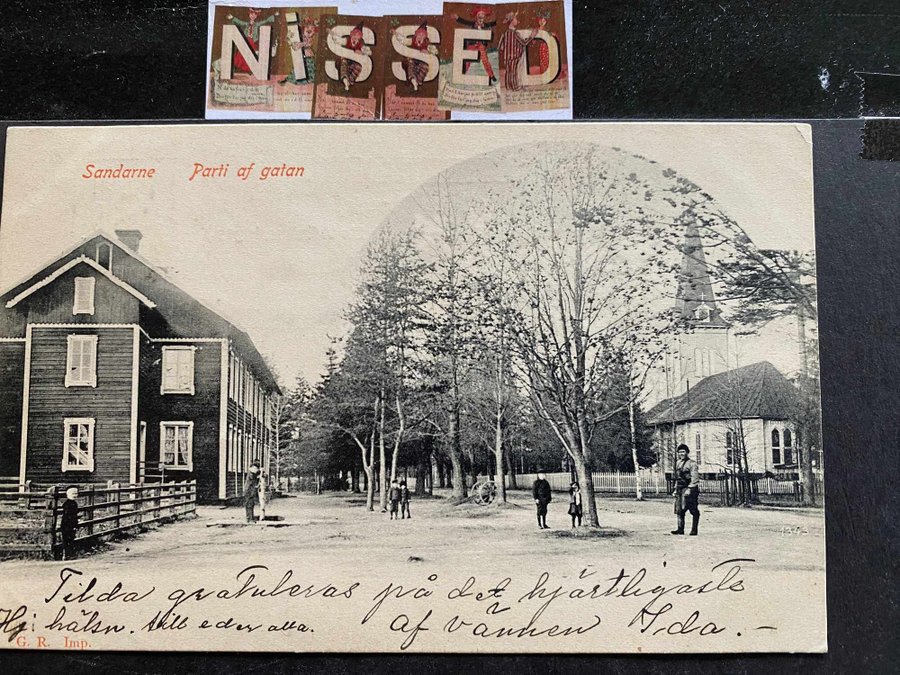 NiSSED
Sandarne Parti af gatan
Tilda gratuleras på det hjärtligaste
af vännen Ida.-
Hj: hälsn. till eder alla.
G. R. Imp.